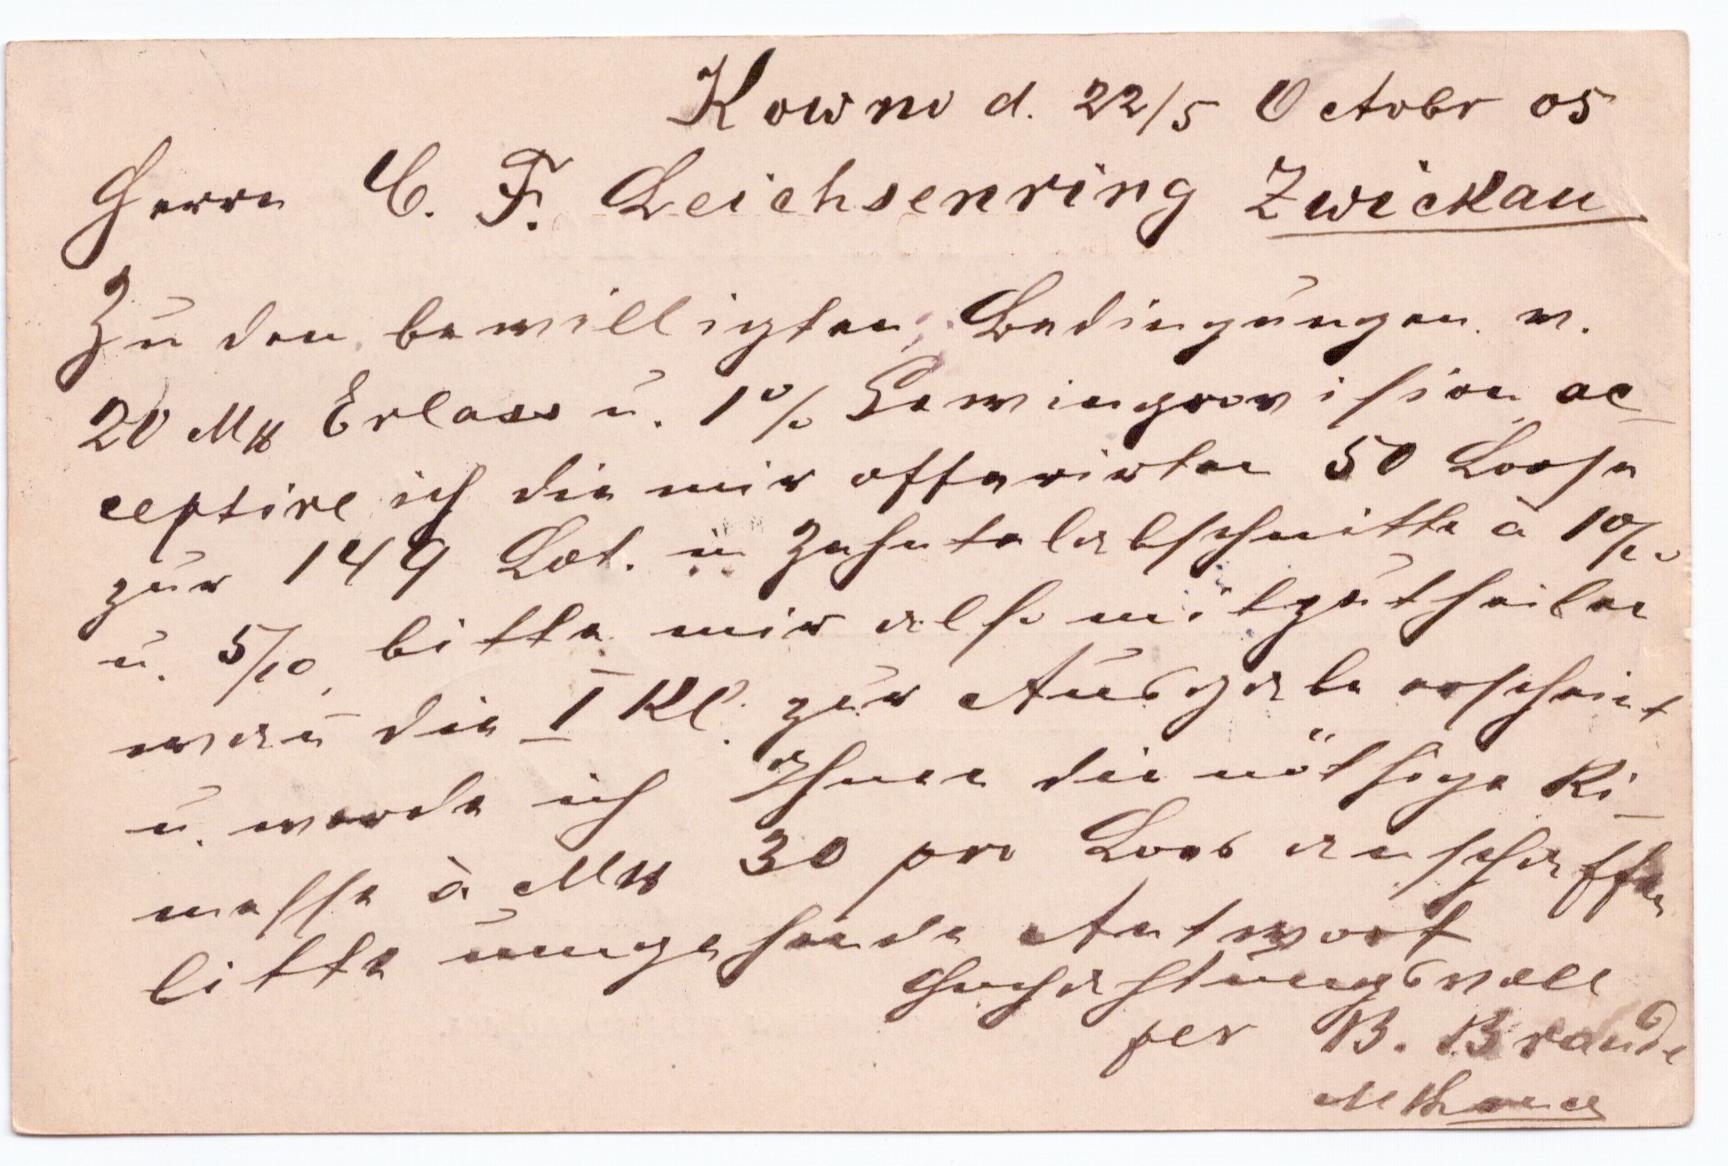 Kowno d. 22/5 Octobr 05
Herrn C. F. Leichsenring Zwickau
Zu den bewilligten Bedingungen v.
20 Mk Erlass u. 1% Gewinprovision ac-
ceptire ich die mir offerirten 50 Loose
zur 149 Lot. in Zehntelabschnitte à 10/10
u. 5/10, bitte mir also mitzutheilen
wan̄ die I Kl. zur Ausgabe erscheint
u. werde ich Ihnen die nöthige Ri-
messe à Mk 30 pro Loos anschaffen
bitte umgehende Antwort
Hochachtungsvoll
per B. Braude